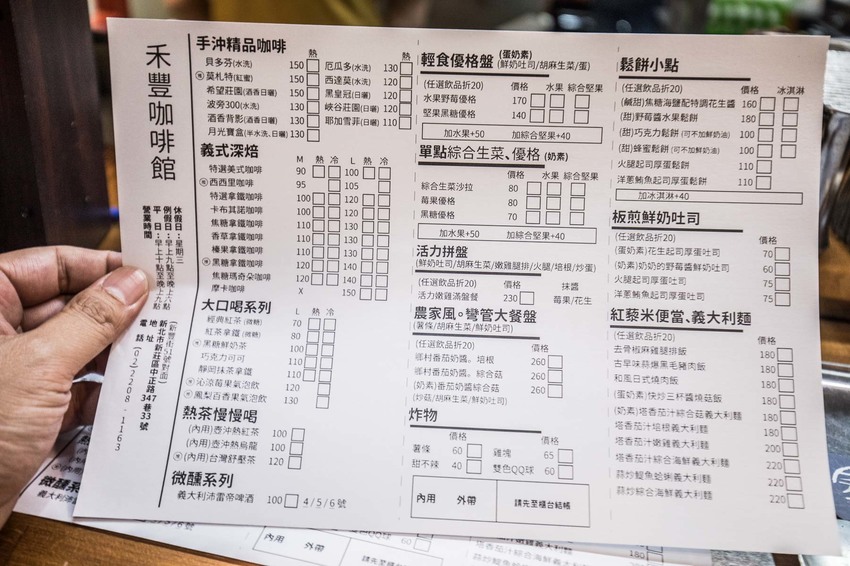 禾豐咖啡館
休假日：星期三
例假日：早上九點至晚上六點
平　日：早上十點至晚上九點
營業時間
(新豐街51號對面)
地　址
新北市新莊區中正路347巷33號
電　話 (02)2208-1163
手沖精品咖啡 熱 熱
貝多芬(水洗) 150 厄瓜多(水洗) 130
莫札特(紅蜜) 150 西達莫(水洗) 120
希望莊園(酒香日曬) 150 黑皇冠(日曬) 120
波旁300(水洗) 130 峽谷莊園(日曬) 120
酒香背影(酒香日曬) 130 耶加雪菲(日曬) 110
月光寶盒(半水洗、日曬) 130
義式深焙 M 熱 冷 L 熱 冷
特選美式咖啡 90 100
西西里咖啡 95 105
特選拿鐵咖啡 100 120
卡布其諾咖啡 100 120
焦糖拿鐵咖啡 120 140
香草拿鐵咖啡 120 140
榛果拿鐵咖啡 120 140
黑糖拿鐵咖啡 120 140
焦糖瑪奇朵咖啡 120 140
摩卡咖啡 X 150
大口喝系列 L 熱 冷
經典紅茶(微糖) 70
紅茶拿鐵(微糖) 80
黑糖鮮奶茶 110
巧克力可可 110
靜岡抹茶拿鐵 110
沁涼莓果氣泡飲 120
鳳梨百香果氣泡飲 130
熱茶慢慢喝
(內用)壺沖熱紅茶 100
(內用)壺沖熱烏龍 100
(內用)台灣舒壓茶 120
微醺系列
義大利沛雷帝啤酒 100 4/5/6號
輕食優格盤 (蛋奶素)
(鮮奶吐司/胡麻生菜/蛋)
(任選飲品折20) 價格 水果 綜合堅果
水果野莓優格 170
堅果黑糖優格 140
加水果+50 加綜合堅果+40
單點綜合生菜、優格 (奶素)
價格 水果 綜合堅果
綜合生菜沙拉 80
莓果優格 80
黑糖優格 70
加水果+50 加綜合堅果+40
活力拼盤
(鮮奶吐司/胡麻生菜/嫩雞腿排/火腿/培根/炒蛋)
(任選飲品折20) 價格 抹醬
活力嫩雞滿盤餐 230 莓果/花生
農家風。彎管大餐盤
(薯條/胡麻生菜/鮮奶吐司)
(任選飲品折20) 價格
鄉村番茄奶醬。培根 260
鄉村番茄奶醬。綜合菇 260
(奶素)番茄奶醬。綜合菇 260
(炒菇/胡麻生菜/鮮奶吐司)
炸物
價格 價格
薯條 60 雞塊 65
甜不辣 40 雙色QQ球 60
內用 外帶 請先至櫃台結帳
鬆餅小點
(任選飲品折20) 價格 冰淇淋
(鹹甜)焦糖海鹽配特調花生醬 160
(甜)野莓醬水果鬆餅 180
(甜)巧克力鬆餅(可不加鮮奶油) 100
(甜)蜂蜜鬆餅(可不加鮮奶油) 100
火腿起司厚蛋鬆餅 110
洋蔥鮪魚起司厚蛋鬆餅 110
加冰淇淋+40
板煎鮮奶吐司
(任選飲品折20) 價格
(蛋奶素)花生起司厚蛋吐司 70
(奶素)奶奶的野莓醬鮮奶吐司 60
火腿起司厚蛋吐司 75
洋蔥鮪魚起司厚蛋吐司 75
紅藜米便當、義大利麵
(任選飲品折20) 價格
去骨椒麻雞腿排飯 180
古早味蒜爆黑毛豬肉飯 180
和風日式燒肉飯 180
(蛋奶素)快炒三杯醬燒菇飯 180
(奶素)塔香茄汁綜合菇義大利麵 180
塔香茄汁培根義大利麵 180
塔香茄汁嫩雞義大利麵 200
塔香茄汁綜合海鮮義大利麵 220
蒜炒鯷魚蛤蜊義大利麵 200
蒜炒綜合海鮮義大利麵 220